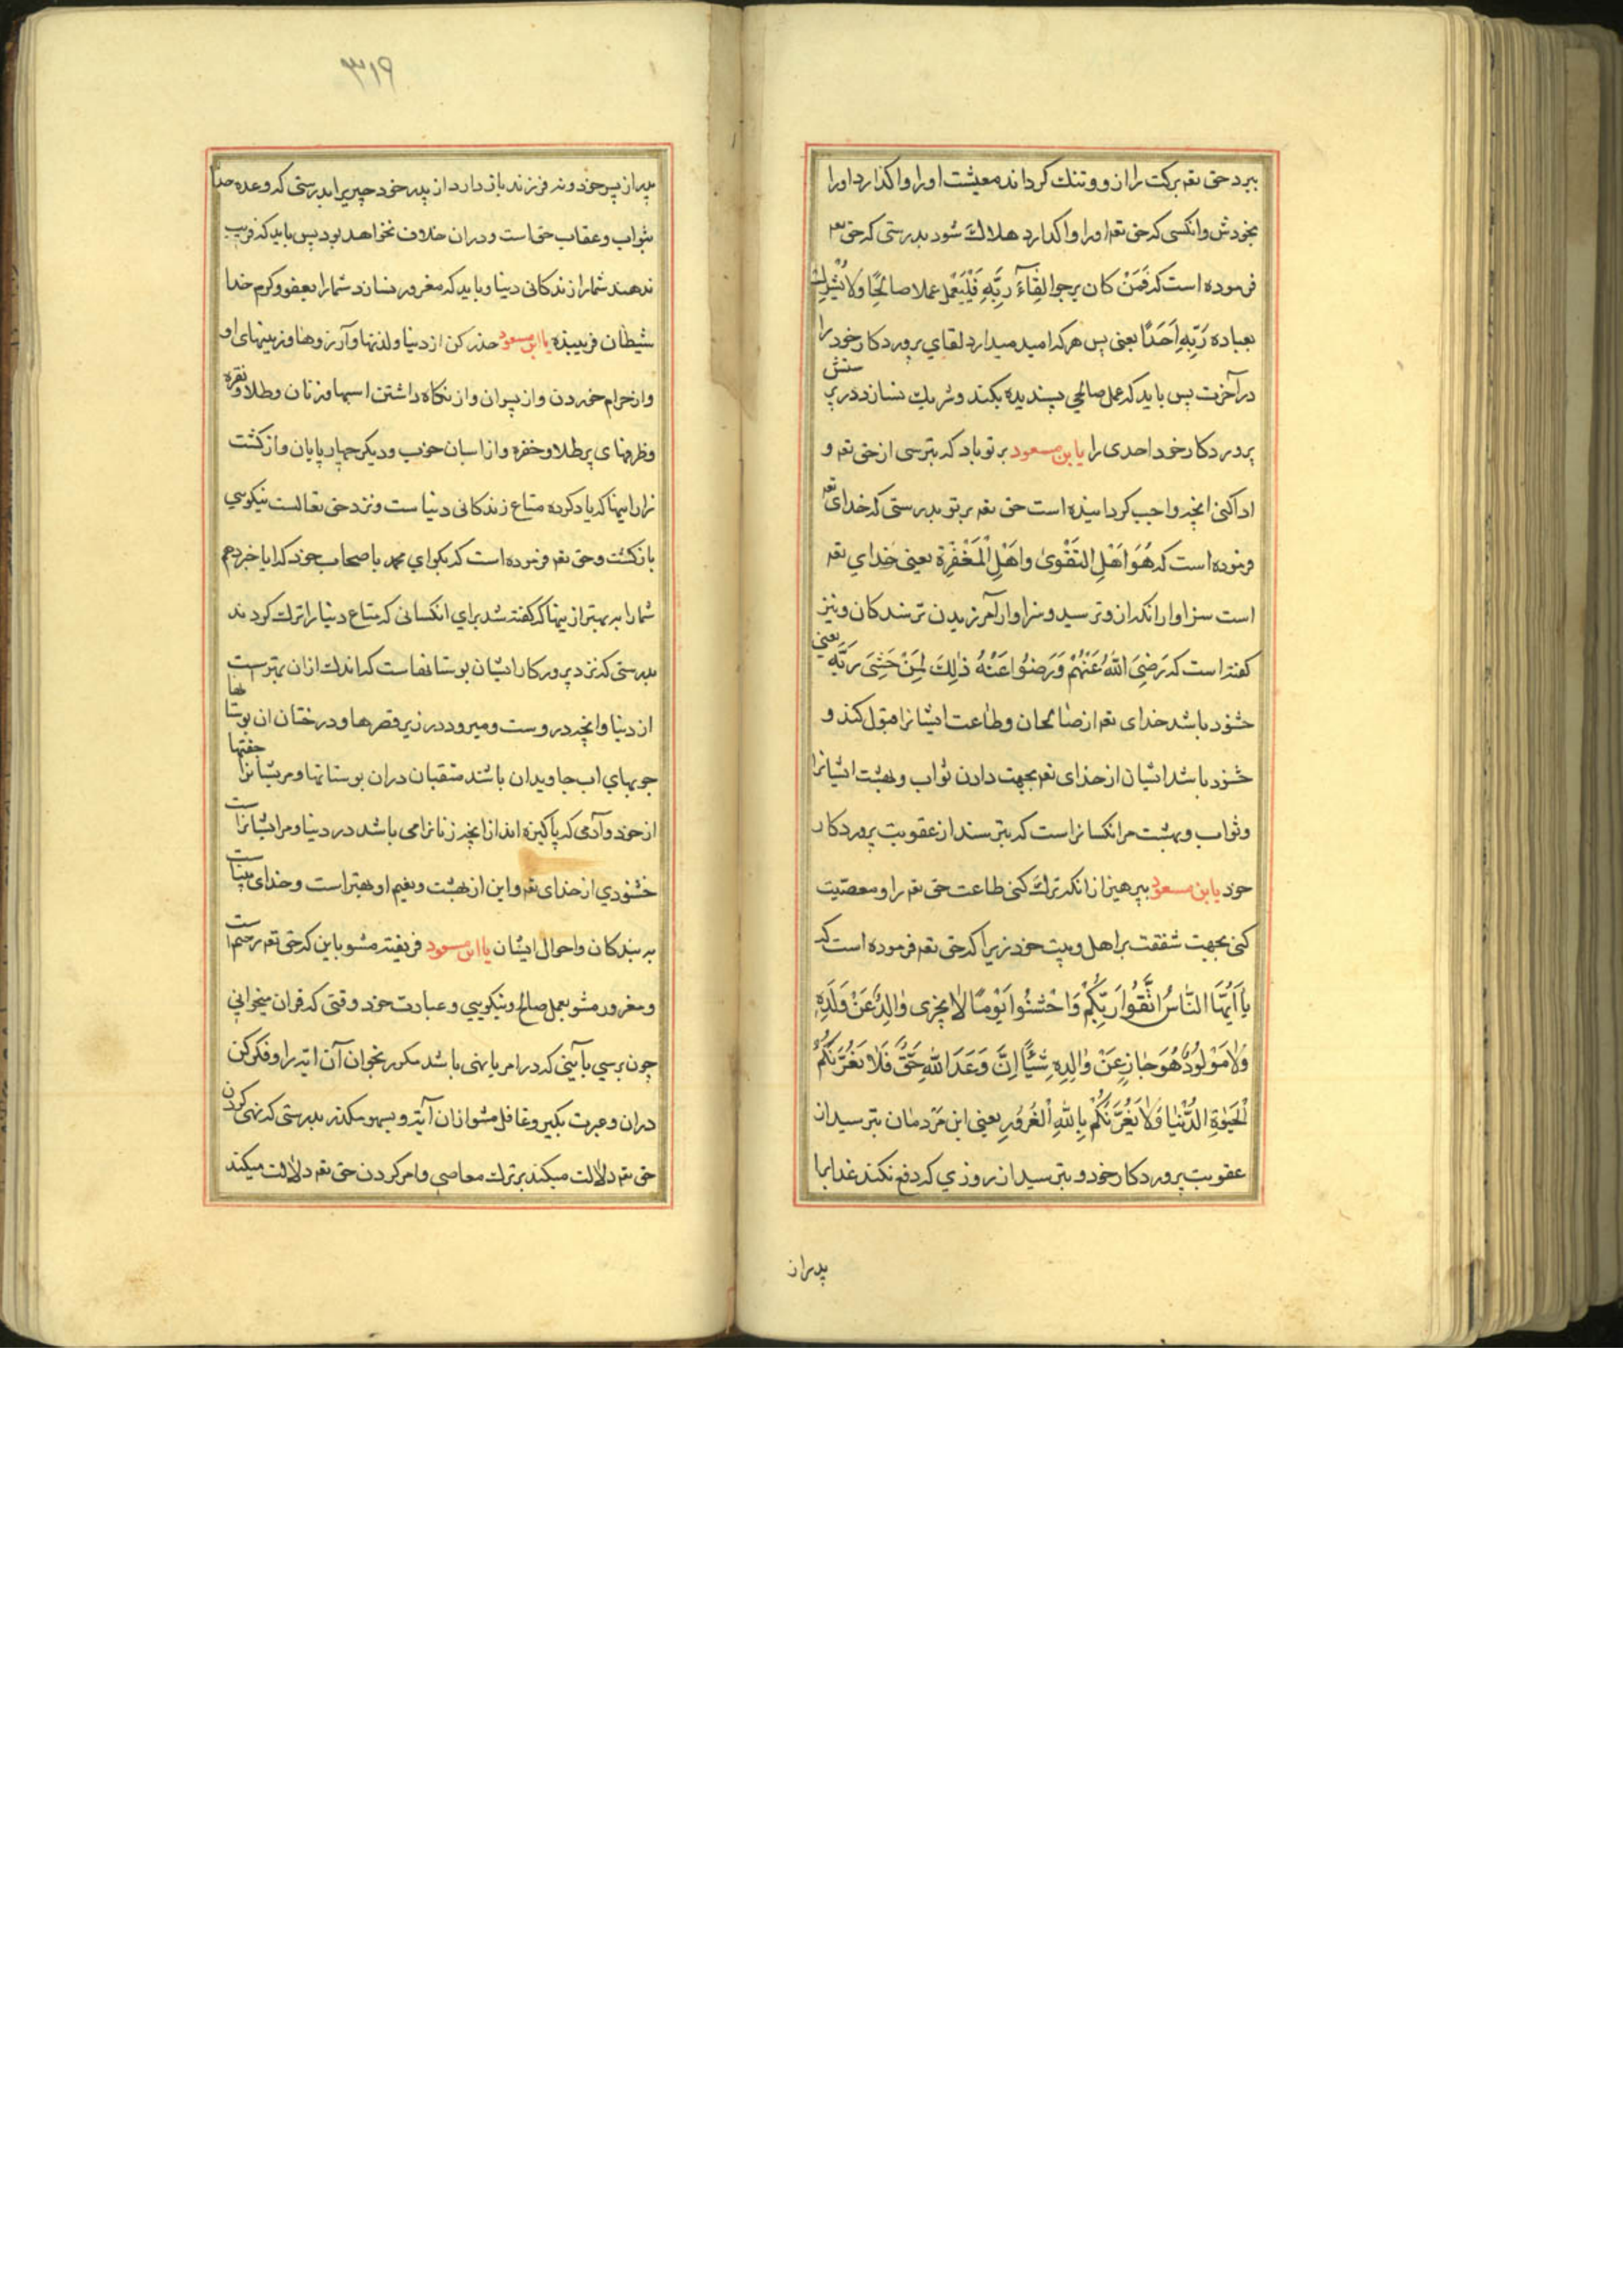 ببرد حق تعم برکت را از و و تنك کرداند معیشت او را و اکذارد او را
بخودش و انکسی که حق تعم او را و اکذارد هلاك شود بدرستی که حق تعم
فرموده است که فَمَنْ کان یرجوا لِقٰٓاءَ رَبِّهِ فَلْیَعْمل عملا صالحًا وَلاٰ یُشْرِك
بعباده رَبِّهِ اَحَدًا یعنی پس هرکه امید میدارد لقای پروردکار خود را
در آخرت پس باید که عمل صالحی پسندیده بکند و شریك نسازد در پرستش
پروردکار خود احدی را یا بن مسعود بر تو باد که بترسی از حق تعم و
ادا کنی انچه واجب کردانیده است حق تعم بر تو بدرستی که خدای تعم
فرموده است که هُوَ اَهْلِ التَقْویٰ واَهْلِ الْمَغْفِرَة یعنی خدای تعم
است سزاوار انکه از و ترسید و سزاوار آمرزیدن ترسندکان و نیز
کفته است که رَضِیَ اللّٰهُ عَنْهُمْ وَرَضُوا عَنْهُ ذٰلِكَ لِمَنْ خَشِیَ رَبَّهُ یعنی
خشنود باشد خدای تعم از صالحان و طاعت ایشانرا قبول کند و
خشنود باشد ایشان از خدای تعم بجهت دادن ثواب و بهشت ایشانرا
و ثواب و بهشت مر انکسانراست که بترسند از عقوبت پروردکار
خود یا بن مسعود بپرهیز از انکه ترك کنی طاعت حق تعم را و معصیت
کنی بجهت شفقت بر اهل و بیت خود زیرا که حق تعم فرموده است که
یٰا اَیُّهَا النّٰاسُ اتَّقُوا رَبِّکُمْ وَاخْشَوُا یَوْمًا لاٰ یجزی وٰالِدٌ عَنْ وَلَدِهِ
وَلاٰ مَوْلُودٌ هُوَ جٰازٍ عَنْ وٰالِدِهِ شَیْئًا اِنَّ وَعَدَ اللّٰهِ حَقٌّ فَلاٰ تَغُرَّنَّکُمُ
الْحَیٰوةِ الدُّنْیٰا وَلاٰ یَغُرَّنَّکُمْ بِاللّٰهِ الْغُرُورِ یعنی ای مَردمان بترسید از
عقوبت پروردکار خود و بترسید از روزی که دفع نکند عذابرا
پدر از
۳۱۹
پدر از پسر خود و نه فرزند باز دارد از پدر خود چیزیرا بدرستی که وعده خدا
بثواب و عقاب حق است و در ان خلاف نخواهد بود پس باید که فریب
ندهند شما را زندکانی دنیا و باید که مغرور نسازد شما را بعفو و کرم خدا
شیطان فریبنده یا ابن مسعود حذر کن از دنیا و لذتها و آرزوها و زینتهای او
و از حرام خوردن و از پسران و از نکاه داشتن اسبها و زنان و طلا و نقره
و ظرفهای پر طلا و خفره و از اسبان خوب و دیکر چهار پایان و از کشت
زار اینها که یاد کرده متاع زندکانی دنیا ست و نزد حق تعالست نیکوسی
بازکشت و حق تعم فرموده است که بکو ای محمد باصحاب خود که ایا خبر دهم
شما را به بهتر از بینها که کفته شد برای انکسانی که متاع دنیا را ترك کردند
بدرستی که نزد پرورکار ایشان بوستانهاست که اندك از ان بهترست
از دنیا و انچه دروست و میرود در زیر قصرها و درختان ان بوستانها
جویهای اب جاویدان باشند متقیان در ان بوستانها و مریشانرا جفتها
از خود و آدمی که پاکیزه اند از انچه زنانرا می باشد در دنیا و مر ایشانراست
خشنودی از خدای تعم و این از بهشت و نعیم او بهتر است و خدای بیناست
به بندکان و احوال ایشان یا ابن مسعود فریفته مشو باین که حق تعم رحیم است
و مغرور مشو بعمل صالح و نیکویی و عبادت خود وقتی که قران میخوانی
چون برسی بآیتی که در امر یا نهی باشد مکرر بخوان آن ایه را و فکر کن
در ان و عبرت بکیر و غافل مشو از ان آیه و بسهو مکذر بدرستی که نهی کردن
حق تعم دلالت میکند بر ترك معاصی و امر کردن حق تعم دلاٰلت میکند